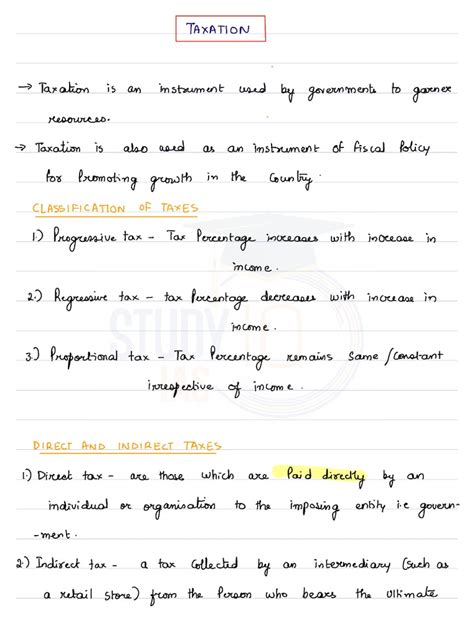 TAXATION
→ Taxation is an instrument used by governments to garner
resources.
→ Taxation is also used as an instrument of Fiscal Policy
for Promoting growth in the Country.
CLASSIFICATION OF TAXES
1.) Progressive tax - Tax Percentage increases with increase in
income.
2.) Regressive tax - tax Percentage decreases with increase in
income.
3.) Proportional tax - Tax Percentage remains same / constant
irrespective of income.
STUDY IQ
IAS
DIRECT AND INDIRECT TAXES
1.) Direct tax - are those which are Paid directly by an
individual or organisation to the imposing entity i.e govern-
-ment.
2.) Indirect tax - a tax collected by an intermediary (such as
a retail store) from the Person who bears the ultimate